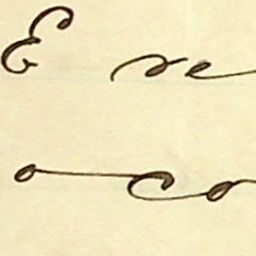 E re
o co